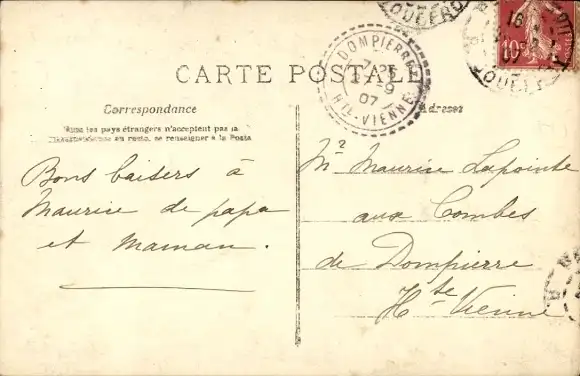 CARTE POSTALE
DOMPIERRE
9
07
HTE-VIENNE
16
10
Correspondance
Adresse
Tous les pays étrangers n'acceptent pas la
correspondance au recto, se renseigner à la Poste
Bons baisers à
Maurice de papa
et Maman.
Mr Maurice Lapointe
aux Combes
de Dompierre
Hte Vienne